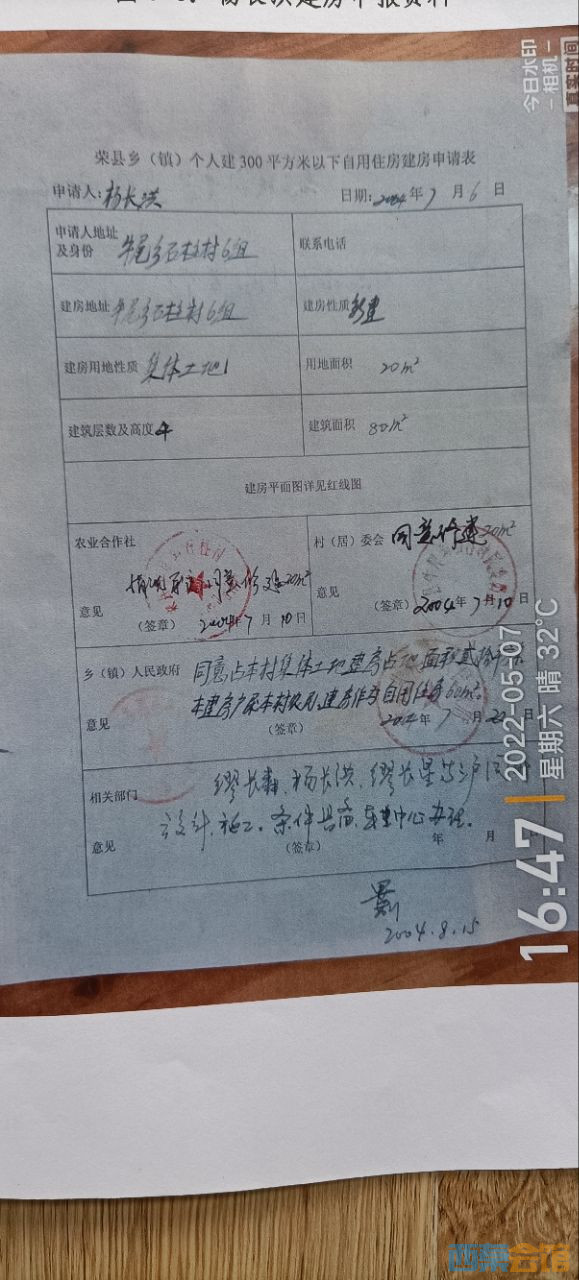 杨长洪建房申报资料
荣县乡（镇）个人建300平方米以下自用住房建房申请表
申请人：杨长洪 日期：2004年7月6日
申请人地址及身份 牛尾乡石柱村6组 联系电话
建房地址 牛尾乡石柱村6组 建房性质 新建
建房用地性质 集体土地 用地面积 20m²
建筑层数及高度 4 建筑面积 80m²
建房平面图详见红线图
农业合作社 村（居）委会 同意修建20m²
同意修建20m²
意见 意见
（签章） 2004年7月10日 （签章） 2004年7月10日
乡（镇）人民政府 同意占本村集体土地建房占地面积贰拾
本建房户系本村农户,建房作为自用住房
意见 （签章） 2004年7月22日
相关部门 缪长 杨长洪、缪长星
设计、施工。条件具备,中心办理。
意见 （签章） 年 月
2004.8.15
今日水印
相机
真实时间
16:47
2022-05-07
星期六 晴 32℃
西蜀会馆